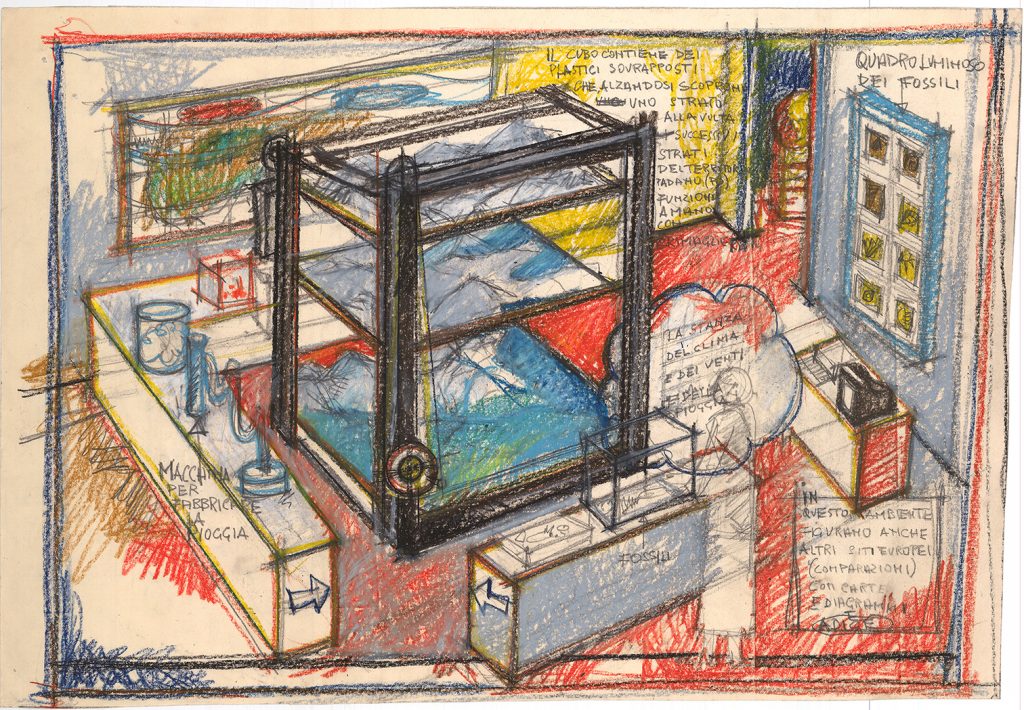 IL CUBO CONTIENE DEI
PLASTICI SOVRAPPOSTI
CHE ALZANDOSI SCOPRONO
UNO STRATO
ALLA VOLTA
I SUCCESSIVI
STRATI
DEL TERRITORIO
PADANO
FUNZIONI
A MANO
CON
QUADRO LUMINOSO
DEI FOSSILI
LA STANZA
DEL CLIMA
E DEI VENTI
E DELLA
PIOGGIA
MACCHINA
PER
FABBRICARE
LA
PIOGGIA
FOSSILI
IN
QUESTO AMBIENTE
FIGURANO ANCHE
ALTRI SITI EUROPEI
(COMPARAZIONI)
CON CARTE
E DIAGRAMMI